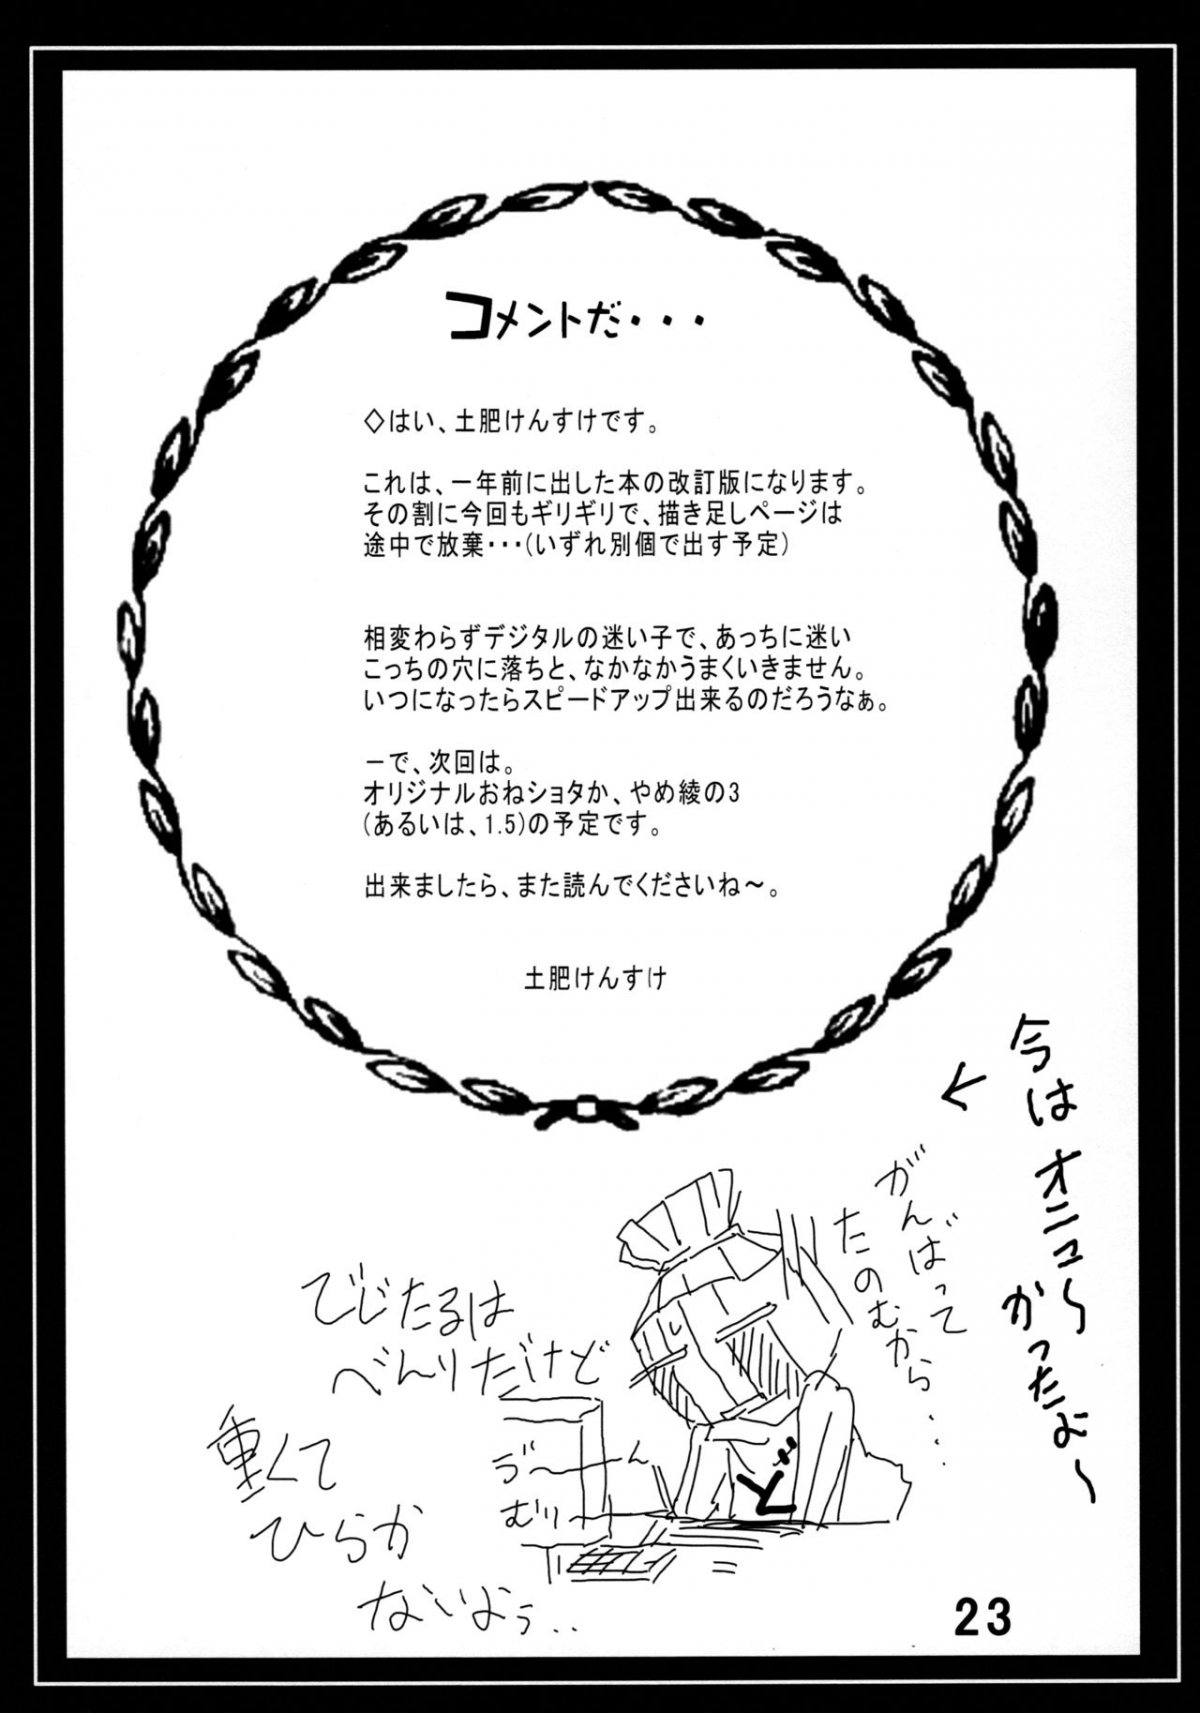 コメントだ・・・
◇はい、土肥けんすけです。
これは、一年前に出した本の改訂版になります。
その割に今回もギリギリで、描き足しページは
途中で放棄・・・(いずれ別個で出す予定)
相変わらずデジタルの迷い子で、あっちに迷い
こっちの穴に落ちと、なかなかうまくいきません。
いつになったらスピードアップ出来るのだろうなぁ。
－で、次回は。
オリジナルおねショタか、やめ綾の3
(あるいは、1.5)の予定です。
出来ましたら、また読んでくださいね～。
土肥けんすけ
今は
かったよ～
がんばって
たのむから・・・
でじたるは
べんりだけど
重くて
ひらか
ないよぅ・・
う～ん
むり
ど
23